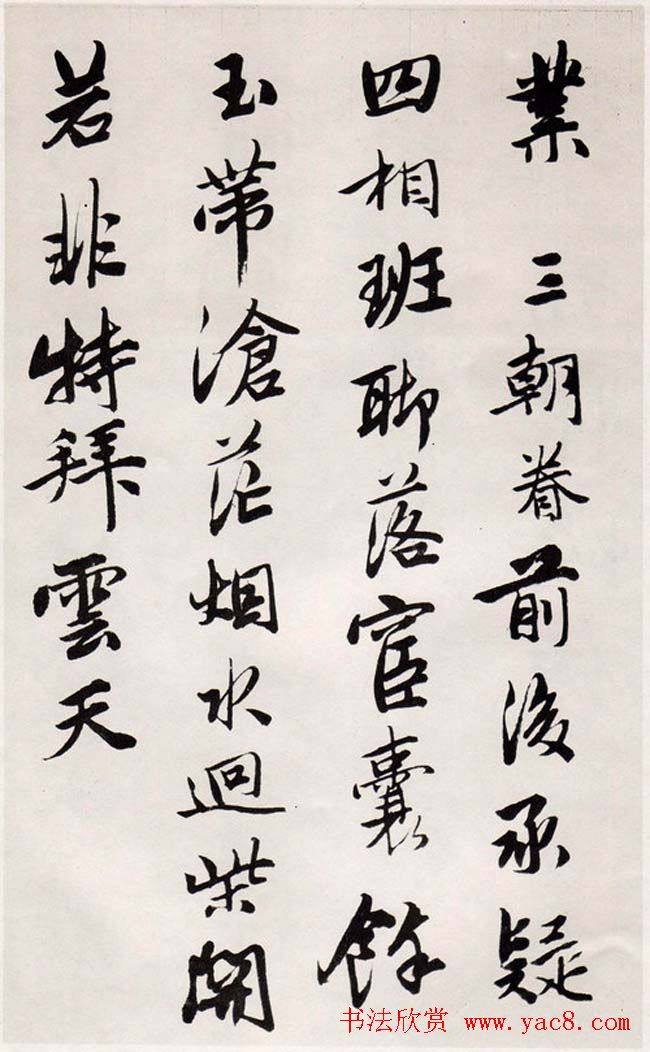 業三朝眷前後承疑
四相班聊落宦囊餘
玉帶滄茫烟水迴柴開
若非特拜雲天
书法欣赏 www.yac8.com